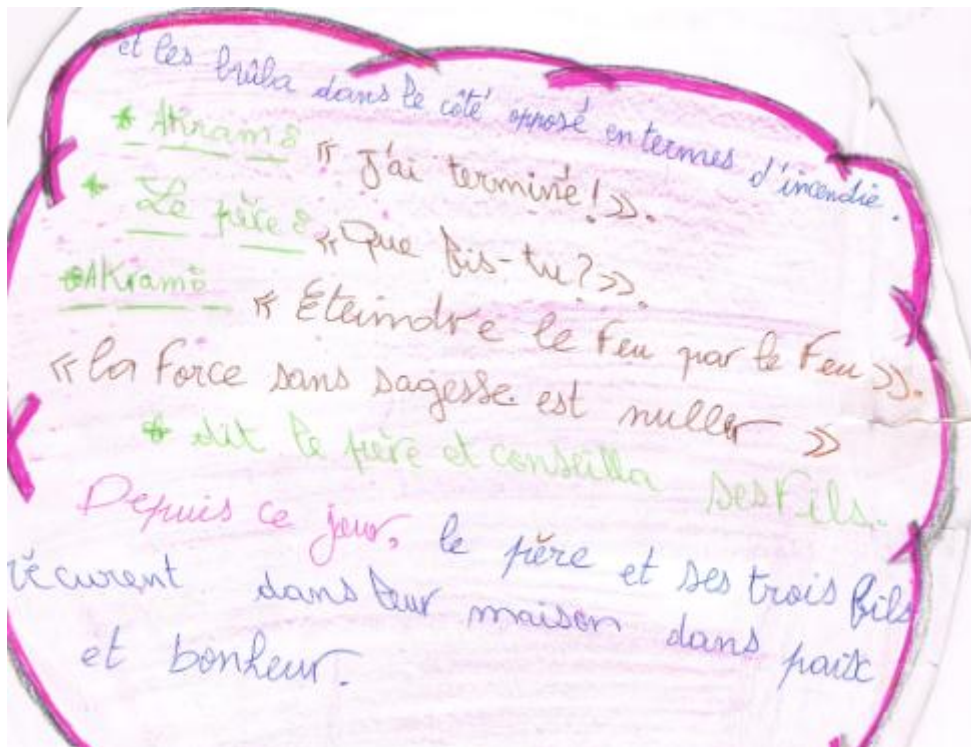 et les brûla dans le côté opposé en termes d'incendie.
* Akram : « J'ai terminé ! ».
* Le père : « Que fis-tu ? ».
* Akram : « Eteindre le Feu par le Feu ».
« la Force sans sagesse est nulle »
* dit le père et conseilla ses Fils.
Depuis ce jour, le père et ses trois fils
vécurent dans leur maison dans paix
et bonheur.